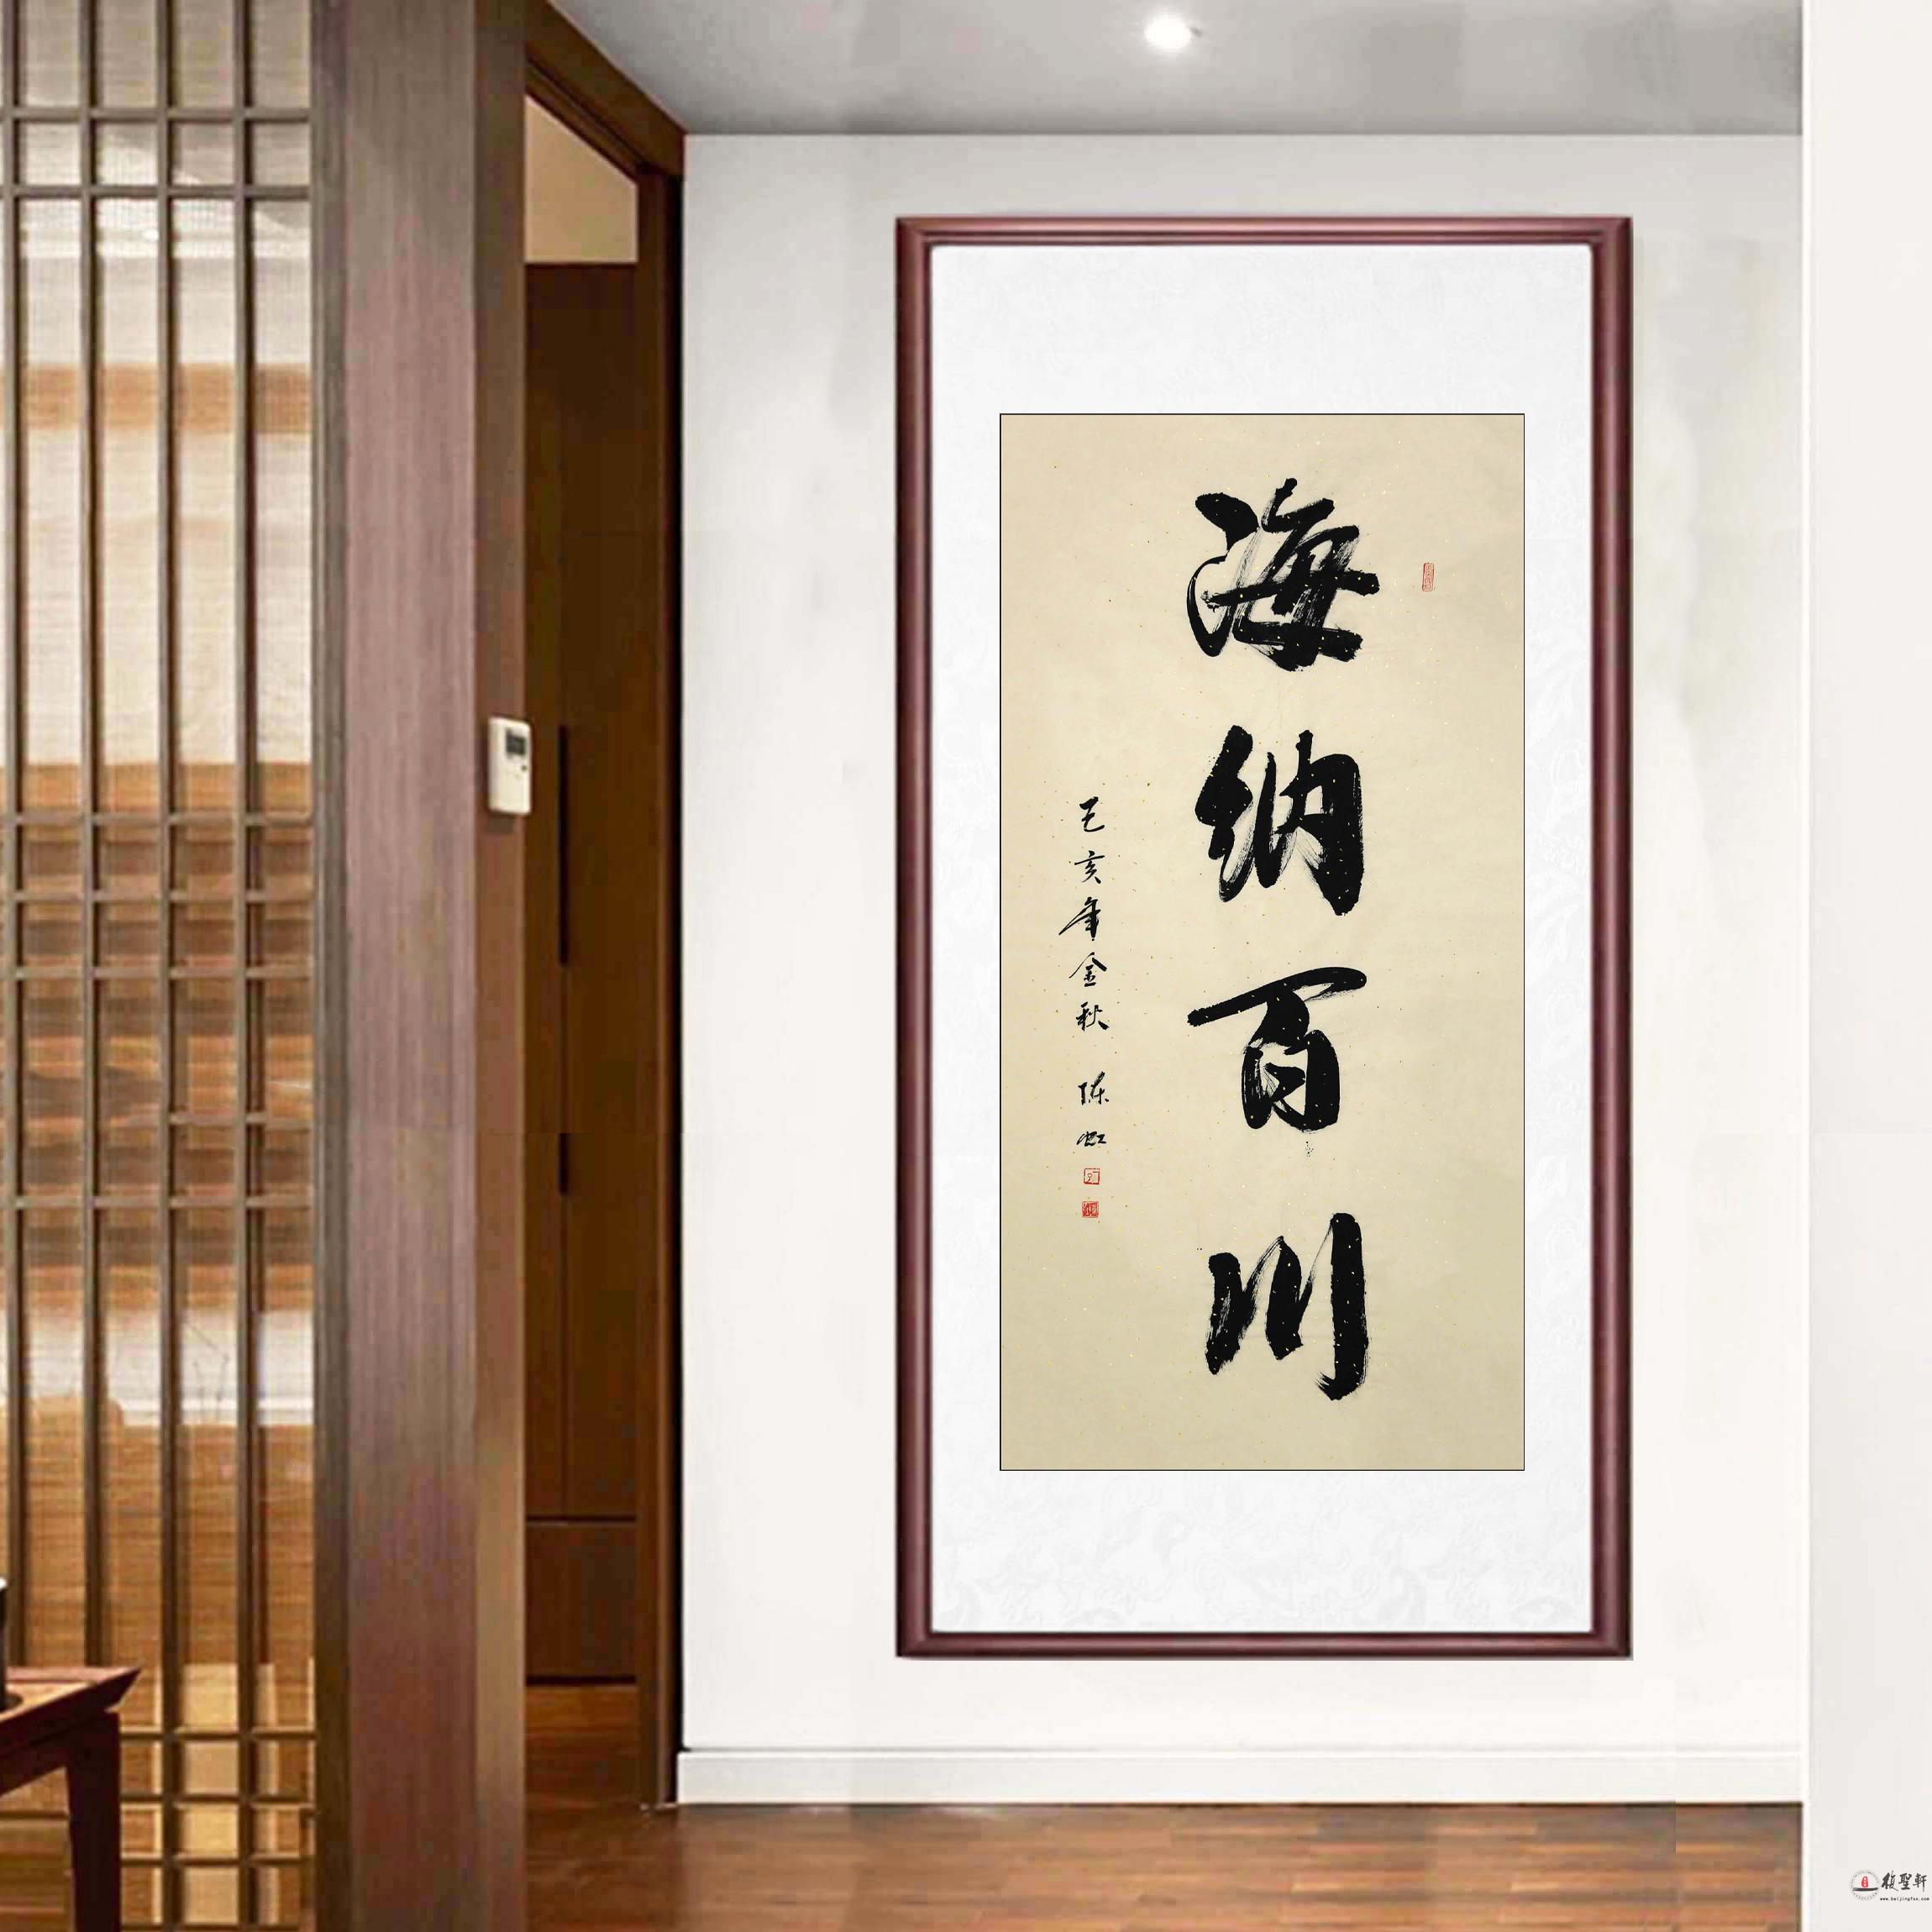 海纳百川
己亥年金秋 陈虹
復聖軒
www.beijingfsx.com